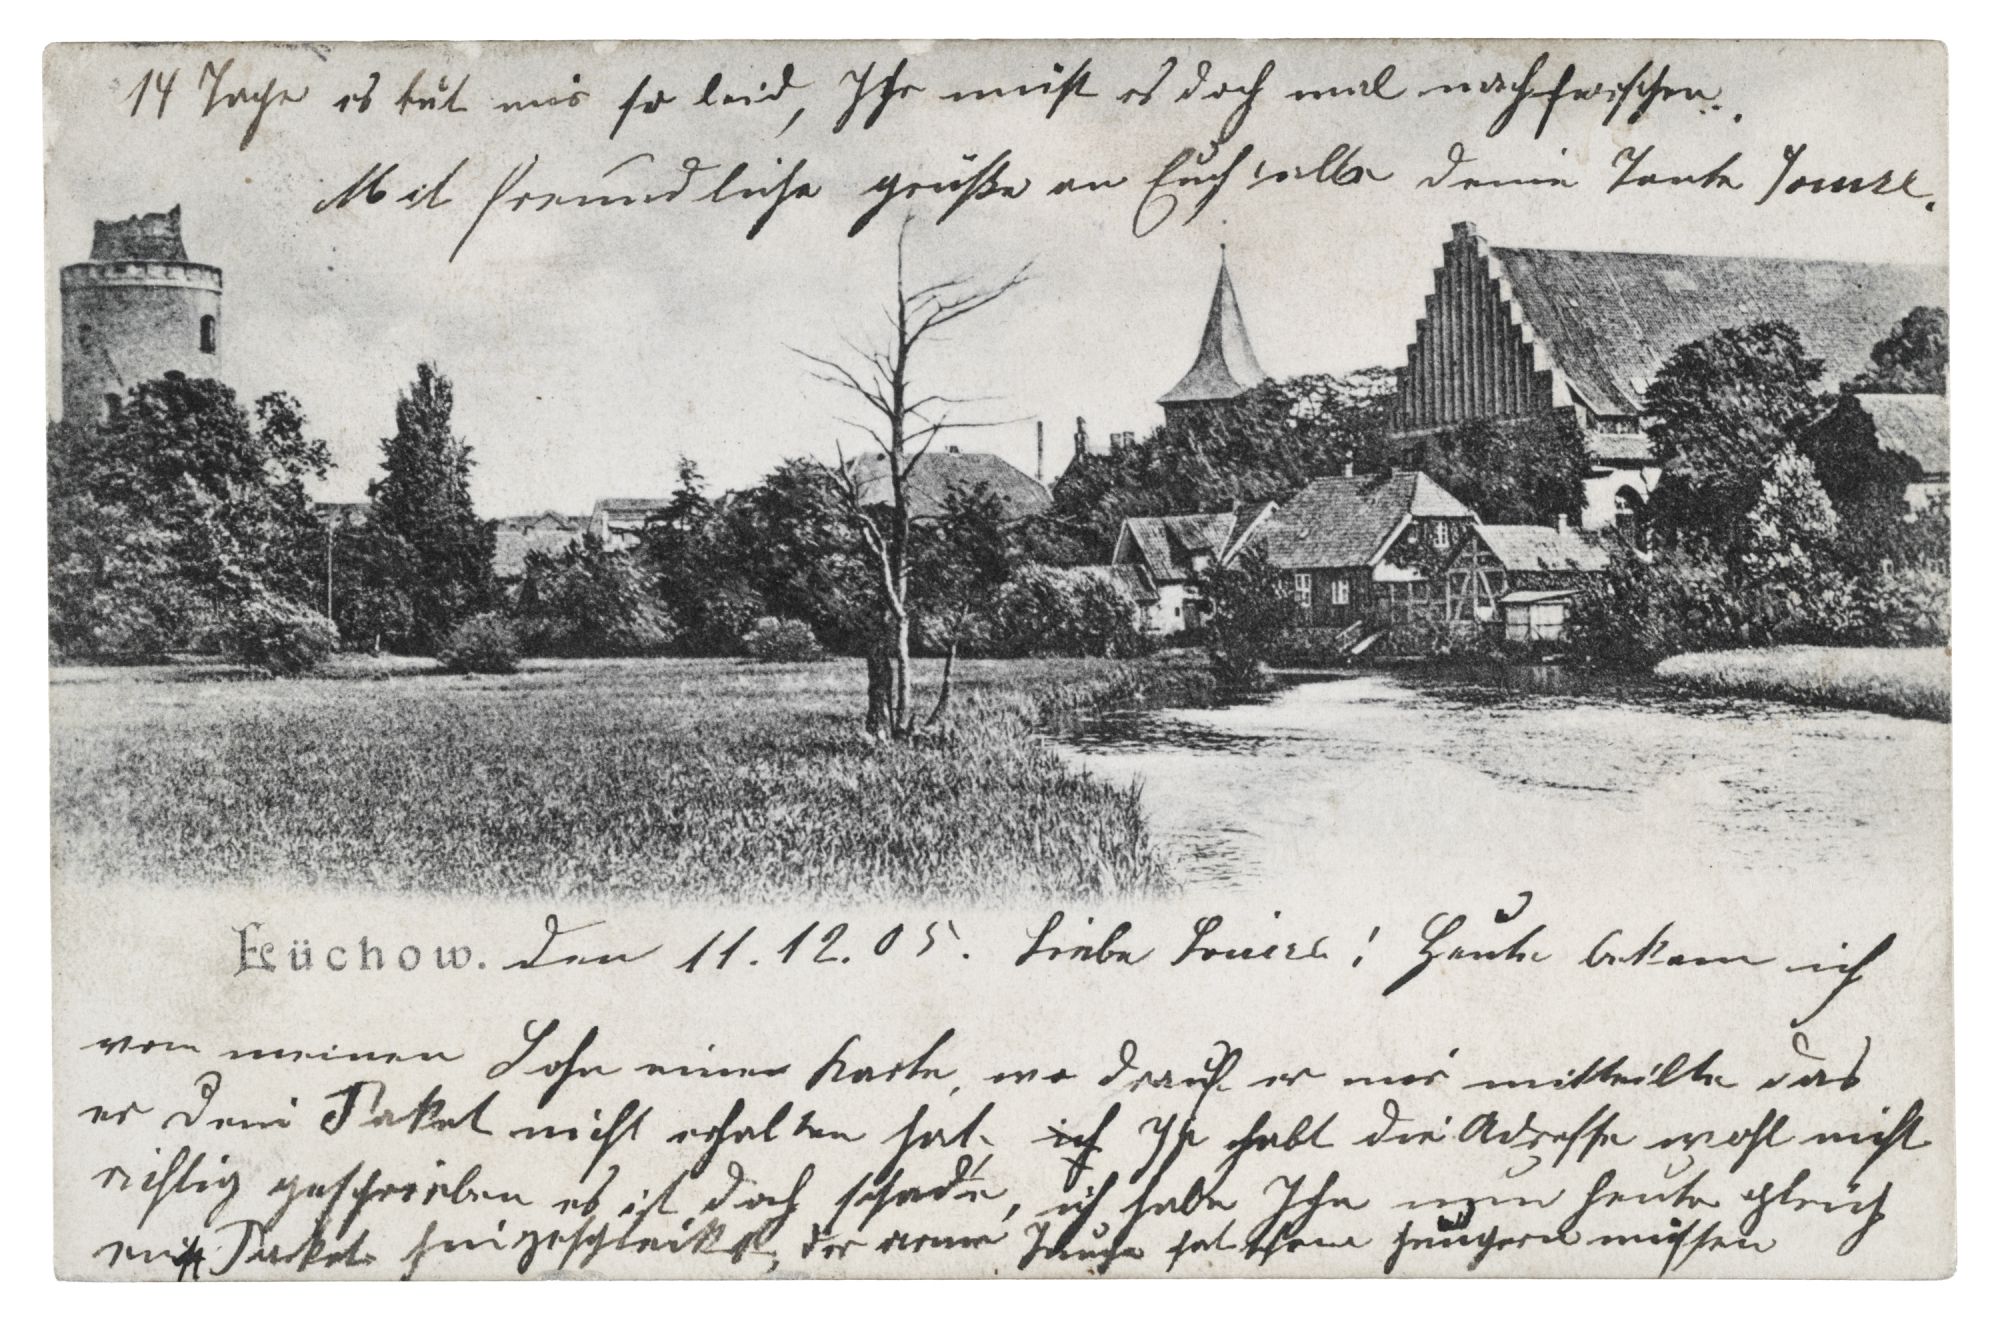 14 Tage es tut mir so leid, Ihr müßt es doch mal nachforschen.
Mit freundliche grüße an Euch alle deine Tante
Lüchow. den 11.12.05. Liebe Louise! Heute bekam ich
von meinen Sohn einen Karte, wo drauf er mir mitteilte das
er dein Paket nicht erhalten hat, ich Ihr habt die Adresse wohl nicht
richtig geschrieben es ist doch schade, ich habe Ihn nun heute gleich
ein Paket hingeschickt, der arme Junge hat hungern müssen